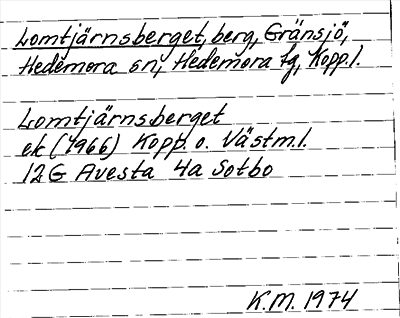 Lomtjärnsberget, berg, Gränsjö,
Hedemora sn, Hedemora tg, Kopp.l.
Lomtjärnsberget
ek (1966) Kopp. o. Västm.l.
12G Avesta 4a Sotbo
K.M. 1974